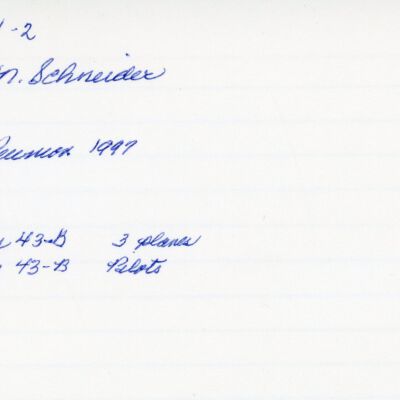 -2
n. Schneider
Reunion 1997
43-B 3 planes
43-B Pilots